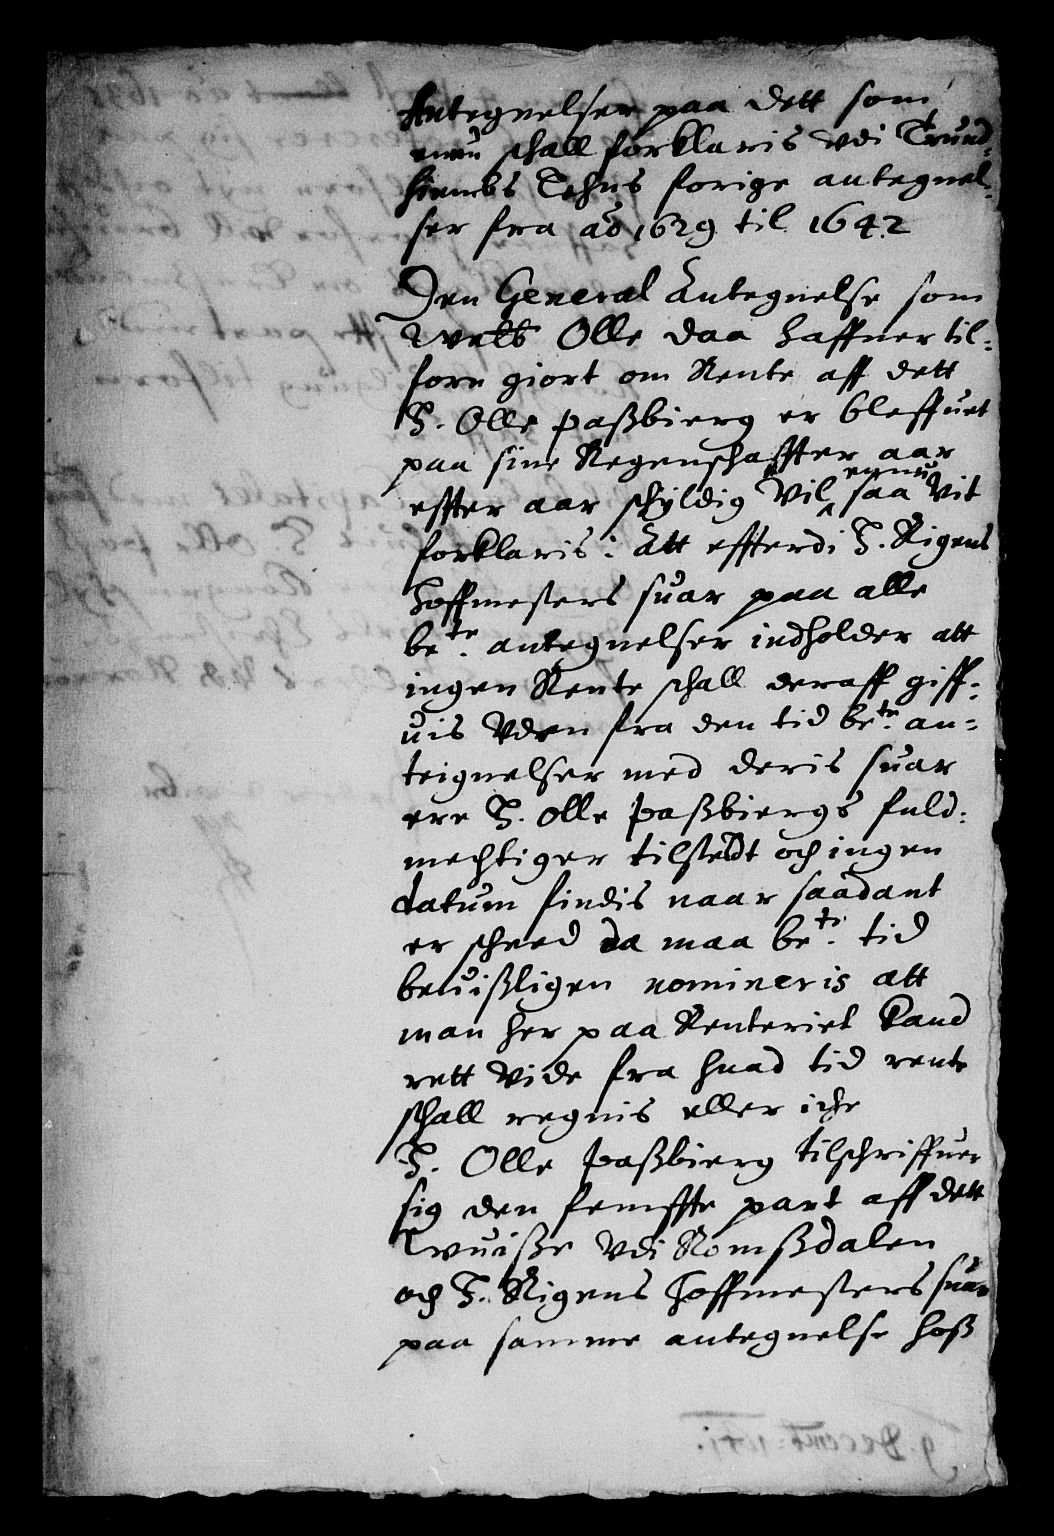 Antegnelser paa dett som
ennu schall forklaris vdi Trund-
hiembs Lehns forige antegnel-
ser fra aō 1629 til 1642
Den General Antegnelse som
Welb Olle daa haffuer til-
forn giort om Rente aff dett
H. Olle Paßbierg er bleffuet
paa sine Regenschaffter aar
effter aar schyldig Vil ennu saa Vit
forklaris: Att efterdi H. Rigens
Hoffmesters suar paa alle
be.te antegnelser indholder att
ingen Rente schall deraff giff-
uis Vden fra den tid be.te an-
teignelser med deris suar
ere H. Olle Paßbiergs fuld-
mechtiger tilstedt och ingen
datum findis naar saadant
er scheed da maa be.te tid
beuißligen nomineris att
man her paa Renteriet kand
rett vide fra huad tid rente
schall regnis eller iche
H. Olle Paßbierg tilschriffuer
sig den femffte part aff dett
Wuisse vdi Romßdalen
och H. Rigens Hoffmesters suar
paa samme antegnelse hoß